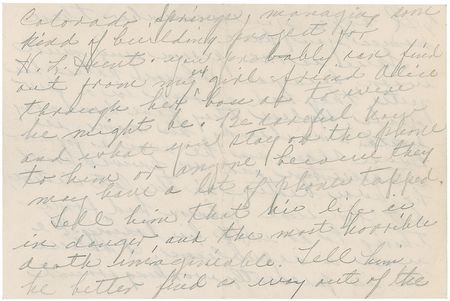 Colorado Springs, managing some
kind of building project for
H. L. Hunt. You probably can find
out from my ex girl-friend Alice
through her boss as to were
he might be. Be careful how
and what you say on the phone
to him or anyone because they
may have a lot of phones tapped.
Tell him that his life is
in danger and the most horrible
death imagineable. Tell him
he better find a way out of the